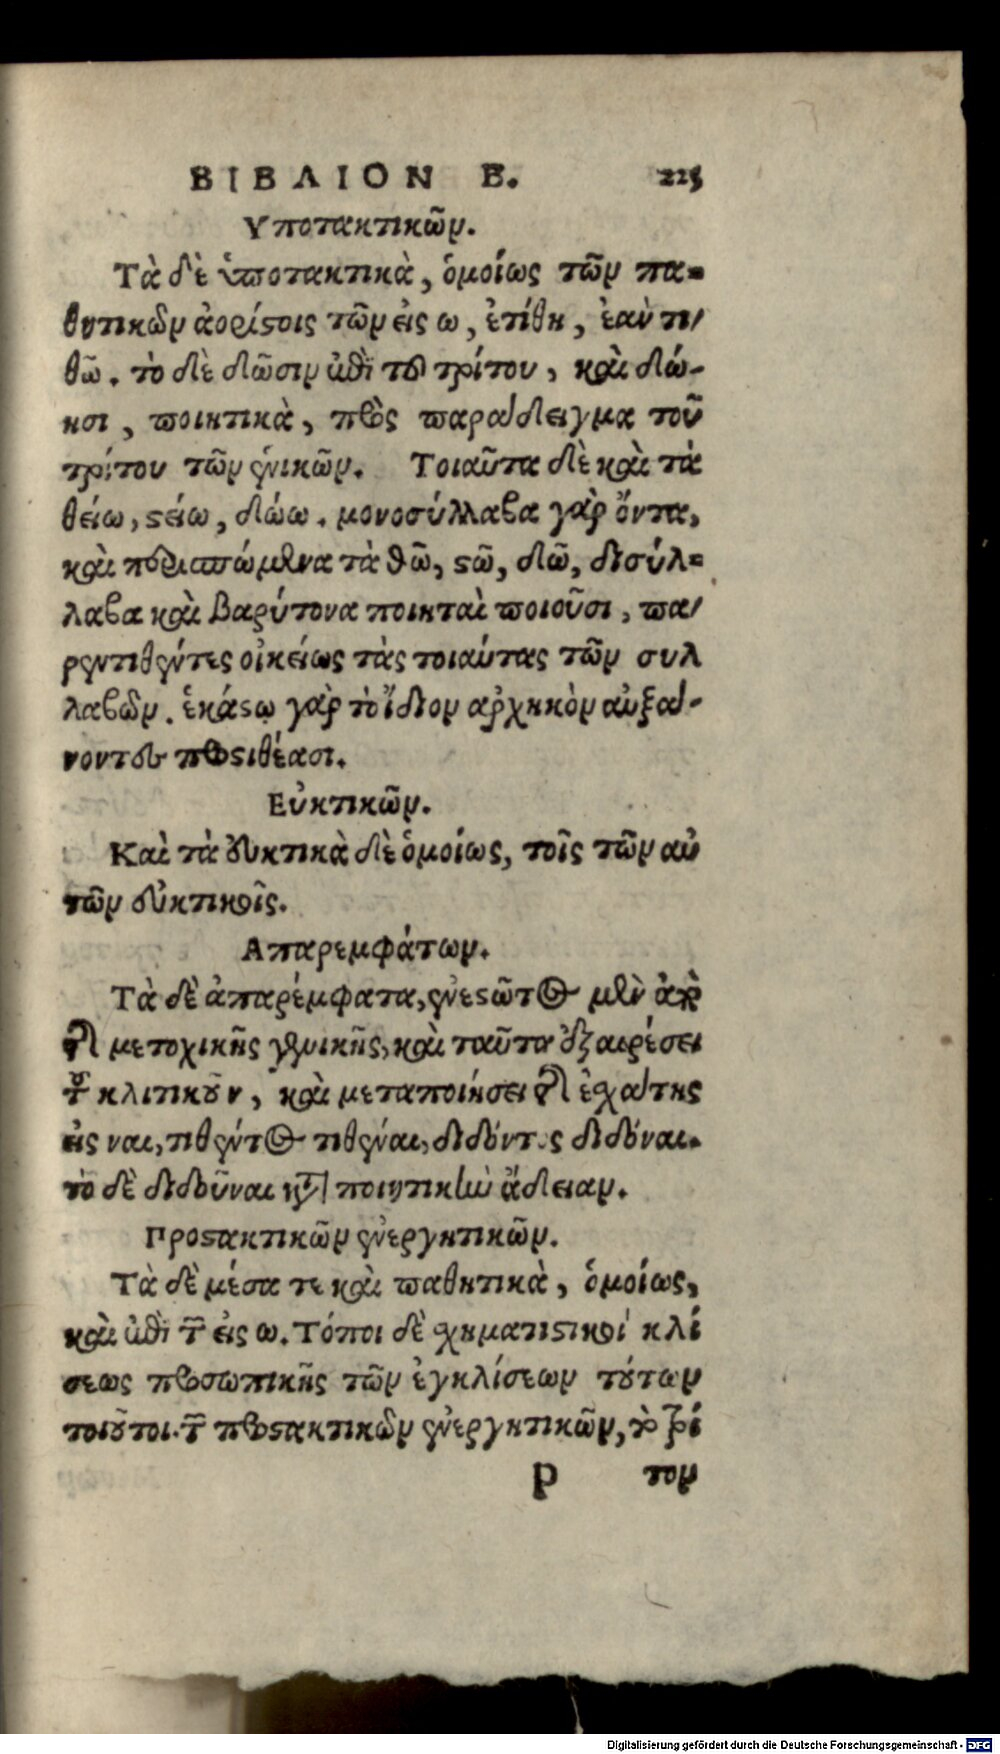 ΒΙΒΛΙΟΝ Ε. 225
Υποτακτικῶν.
Τὰ δὲ ὑποτακτικὰ, ὁμοίως τῶν πα-
θητικῶν ἀορίστοις τῶν εἰς ω, ἐτίθη, ἐὰν τι-
θῶ. τὸ δὲ δῶσιν ἐπὶ τοῦ τρίτου, καὶ δώ-
ησι, ποιητικὰ, πρὸς παράδειγμα τοῦ
τρίτου τῶν ἑνικῶν. Τοιαῦτα δὲ καὶ τὰ
θείω, στείω, δώω. μονοσύλλαβα γὰρ ὄντα,
καὶ περισπώμενα τὰ θῶ, στῶ, δῶ, δισύλ-
λαβα καὶ βαρύτονα ποιηταὶ ποιοῦσι, πα-
ρεντιθέντες οἰκείως τὰς τοιαύτας τῶν συλ
λαβῶν. ἑκάστῳ γὰρ τὸ ἴδιον ἀρχηκὸν αὐξαί-
νοντες προστιθέασι.
Εὐκτικῶν.
Καὶ τὰ εὐκτικὰ δὲ ὁμοίως, τοῖς τῶν αὐ
τῶν εὐκτικοῖς.
Απαρεμφάτων.
Τὰ δὲ ἀπαρέμφατα, ἐνεστῶτος μὲν ἀπὸ
τῆς μετοχικῆς γενικῆς, καὶ ταῦτα ἐξαιρέσει
τοῦ κλιτικοῦ ν, καὶ μεταποιήσει τῆς ἐσχάτης
εἰς ναι, τιθέντος τιθέναι, διδόντος διδόναι.
τὸ δὲ διδοῦναι κατὰ ποιητικὴν ἄδειαν.
Προστακτικῶν ἐνεργητικῶν.
Τὰ δὲ μέσα τε καὶ παθητικὰ, ὁμοίως,
καὶ ἐπὶ τῶν εἰς ω. Τόποι δὲ σχηματιστικοὶ κλί
σεως προσωπικῆς τῶν ἐγκλίσεων τούτων
τοιοῦτοι. τῶν προστακτικῶν ἐνεργητικῶν, τὸ τρί
P τον
Digitalisierung gefördert durch die Deutsche Forschungsgemeinschaft - DFG